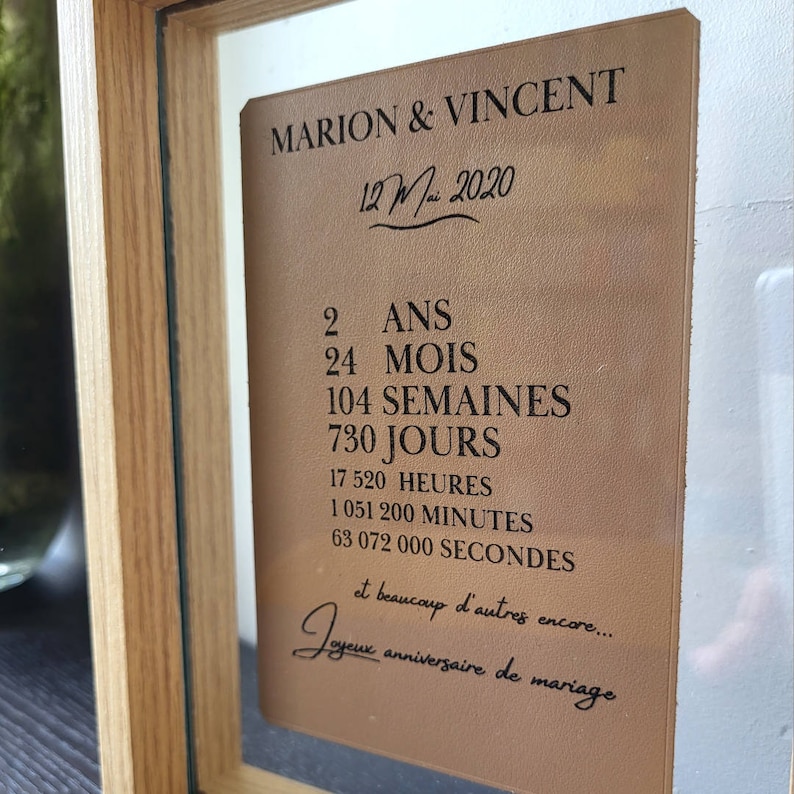 MARION & VINCENT
12 Mai 2020
2 ANS
24 MOIS
104 SEMAINES
730 JOURS
17 520 HEURES
1 051 200 MINUTES
63 072 000 SECONDES
et beaucoup d'autres encore...
Joyeux anniversaire de mariage